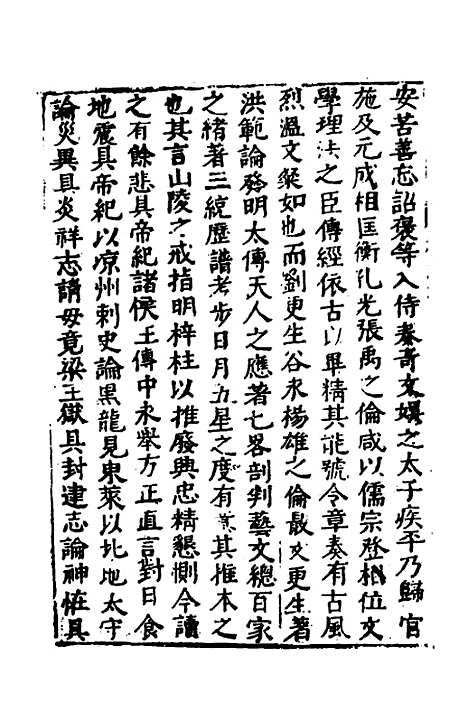 安苦善忘詔襃等入侍奏奇文娛之太子疾平乃歸官
施及元成相匡衡孔光張禹之倫咸以儒宗登相位文
學理法之臣傳經依古以畢精其能號令章奏有古風
烈溫文粲如也而劉更生谷永楊雄之倫最文更生著
洪範論發明太傳天人之應著七畧剖判藝文總百家
之緒著三統歷譜考步日月五星之度有其推本之
也其言山陵之戒指明梓柱以推廢興忠精懇惻今讀
之有餘悲具帝紀諸侯王傳中永舉方正直言對日食
地震具帝紀以凉州刺史論黑龍見東萊以北地太守
論災異具災祥志請毋竟梁王獄具封建志論神怪具